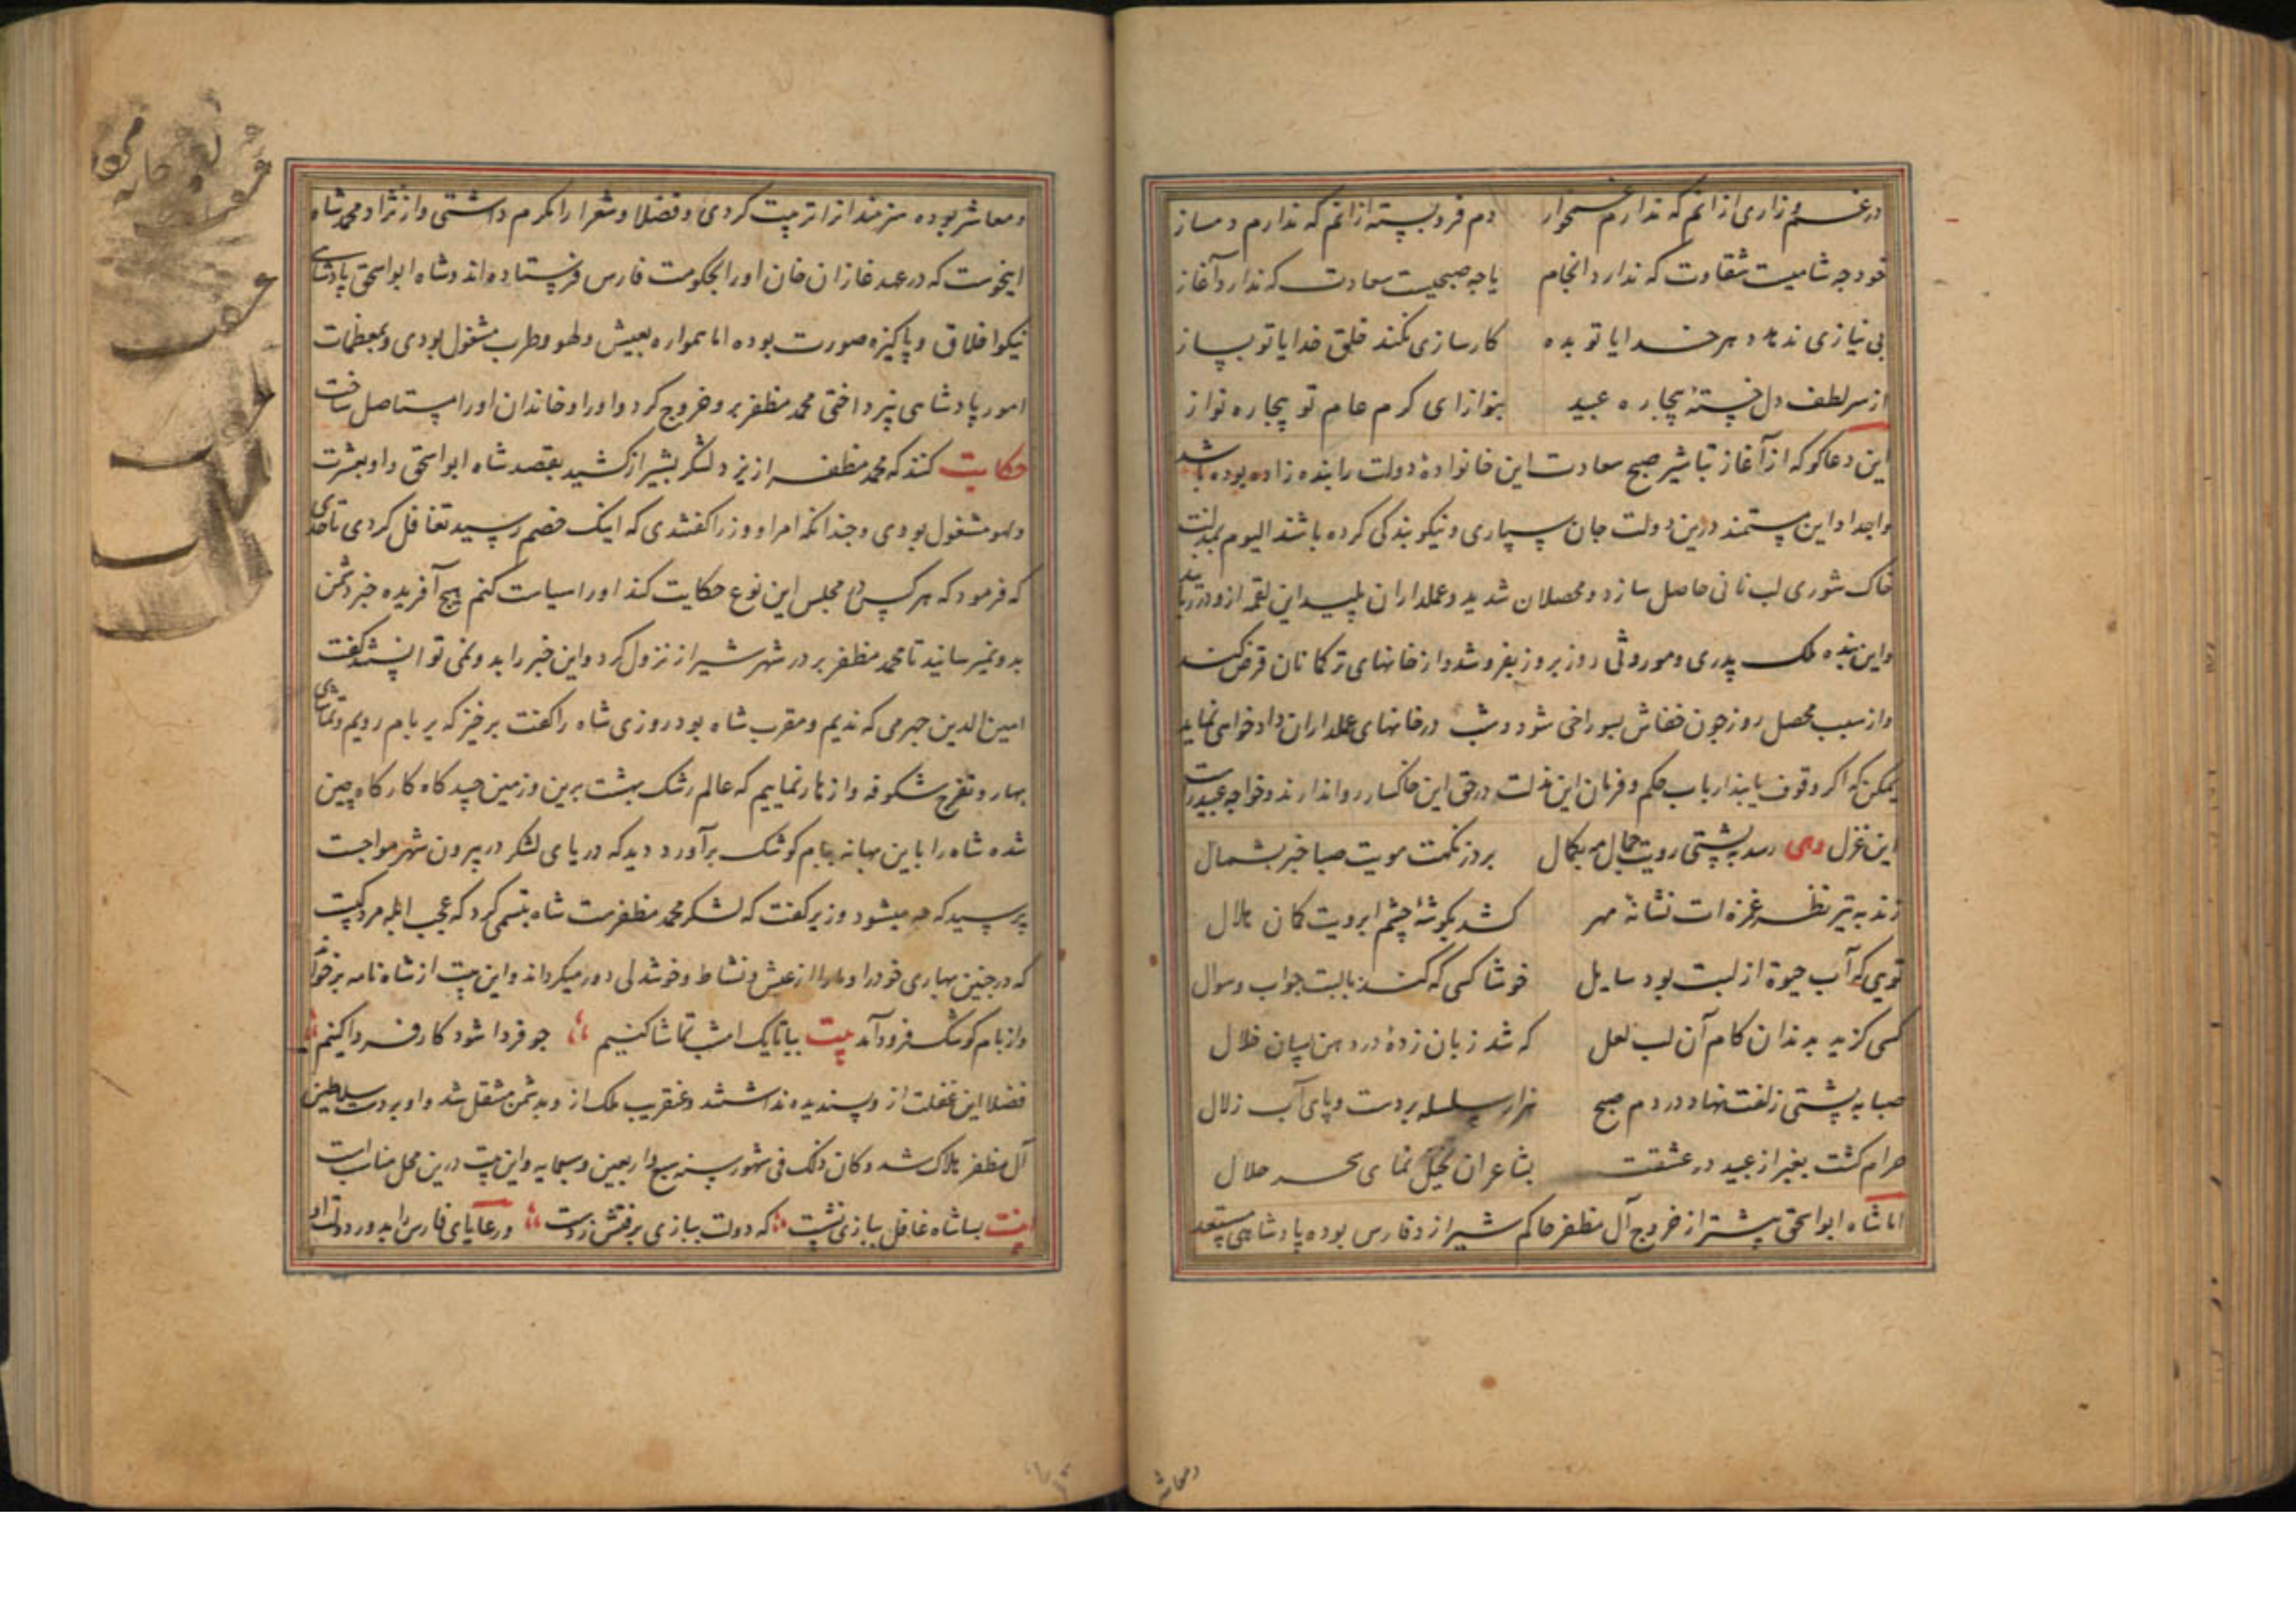 در غم و زاری ازانم که ندارم غمخوار دم فروبسته ازانم که ندارم دمساز
خود چه شامیست شقاوت که ندارد انجام یا چه صبحیست سعادت که ندارد آغاز
بی نیازی ندهد دهر خدایا تو بده کارسازی نکند خلق خدایا تو بساز
از سر لطف دل خستهٔ بیچاره عبید بنواز ای کرم عام تو بیچاره نواز
این دعاگو که از آغاز تباشیر صبح سعادت این خانوادهٔ دولت را بنده زاده بوده باشد
واجداد این مستمند درین دولت جان سپاری و نیکو بندکی کرده باشند الیوم بمذلت
خاک شوری لب نانی حاصل سازد و محصلان شدید و عملداران پلید این لقمه ازو در ربایند
واین بنده ملک پدری و موروثی روز بروز بفروشد و از خانهای ترکمانان قرض کند
واز سبب محصل روز چون خفاش بسوراخی شود و شب در خانهای عملداران دادخواهی نماید
یمکن که اکر وقوف یابند ارباب حکم و فرمان این مذلت در حق این خاکسار روا ندارند و خواجه عبید راست
این غزل وهی رسد به پشتی رویت جمال مه بکمال برد ز نکهت مویت صبا خبر بشمال
زند به تیر نظر غمزه ات نشانهٔ مهر کشد بکوشهٔ چشم ابرویت کمان هلال
تویی که آب حیوة از لبت بود سایل خوشا کسی که کند با لبت جواب و سوال
کسی کزید بدندان کام آن لب لعل که شد زبان زده در دهن بسان خلال
صبا به پشتی زلفت نهاد در دم صبح هزار سلسله بر دست و پای آب زلال
حرام کشت بغیر از عبید در عشقت بشاعران تخیل نمای سحر حلال
اما شاه ابواسحق پیشتر از خروج آل مظفر حاکم شیراز و فارس بوده پادشاهی مستعد
ومعاشر بوده هنرمندانرا تربیت کردی و فضلا و شعرا را مکرم داشتی و از نژاد محمد شاه
اینجوست که در عهد غازان خان اورا بحکومت فارس فرستاده اند و شاه ابواسحق پادشاهی
نیکو اخلاق و پاکیزه صورت بوده اما همواره بعیش و لهو و طرب مشغول بودی و بمعظمات
امور پادشاهی نپرداختی محمد مظفر برو خروج کرد و اورا و خاندان اورا مستاصل ساخت
حکایت کنند که محمد مظفر از یزد لشکر بشیراز کشید بقصد شاه ابواسحق و او بعشرت
ولهو مشغول بودی و چندانکه امرا و وزرا کفتندی که اینک خصم رسید تغافل کردی تا حدی
که فرمود که هر کس در مجلس این نوع حکایت کند اورا سیاست کنم هیچ آفریده خبر دشمن
بدو نمیرسانید تا محمد مظفر بر در شهر شیراز نزول کرد و این خبر را بدو نمی توانستند کفت
امین الدین جهرمی که ندیم و مقرب شاه بود روزی شاه را کفت برخیز که بر بام رویم و تماشای
بهار و تفرج شکوفه و ازهار نماییم که عالم رشک بهشت برین و زمین چیدکاه کارکاه چین
شده شاه را باین بهانه ببام کوشک برآورد دید که دریای لشکر در بیرون شهر مواجست
پرسید که چه میشود وزیر کفت که لشکر محمد مظفرست شاه تبسمی کرد که عجب ابله مردکیست
که در چنین بهاری خود را و ما را از عیش و نشاط و خوشدلی دور میکرداند و این بیت از شاه نامه برخواند
واز بام کوشک فرود آمد بیت بیا تا یک امشب تماشا کنیم چو فردا شود کار فردا کنیم
فضلا این غفلت از و پسندیده نداشتند و عنقریب ملک از و به دشمن منتقل شد و او بر دست سلاطین
آل مظفر هلاک شد و کان ذلک فی شهور سنه سبع و اربعین و سبعمایه و این بیت درین محل مناسب است
بیت بسا شاه غافل ببازی نشست که دولت ببازی برفتش ز دست ورعایای فارس را بدور دولت او
ومعاشر